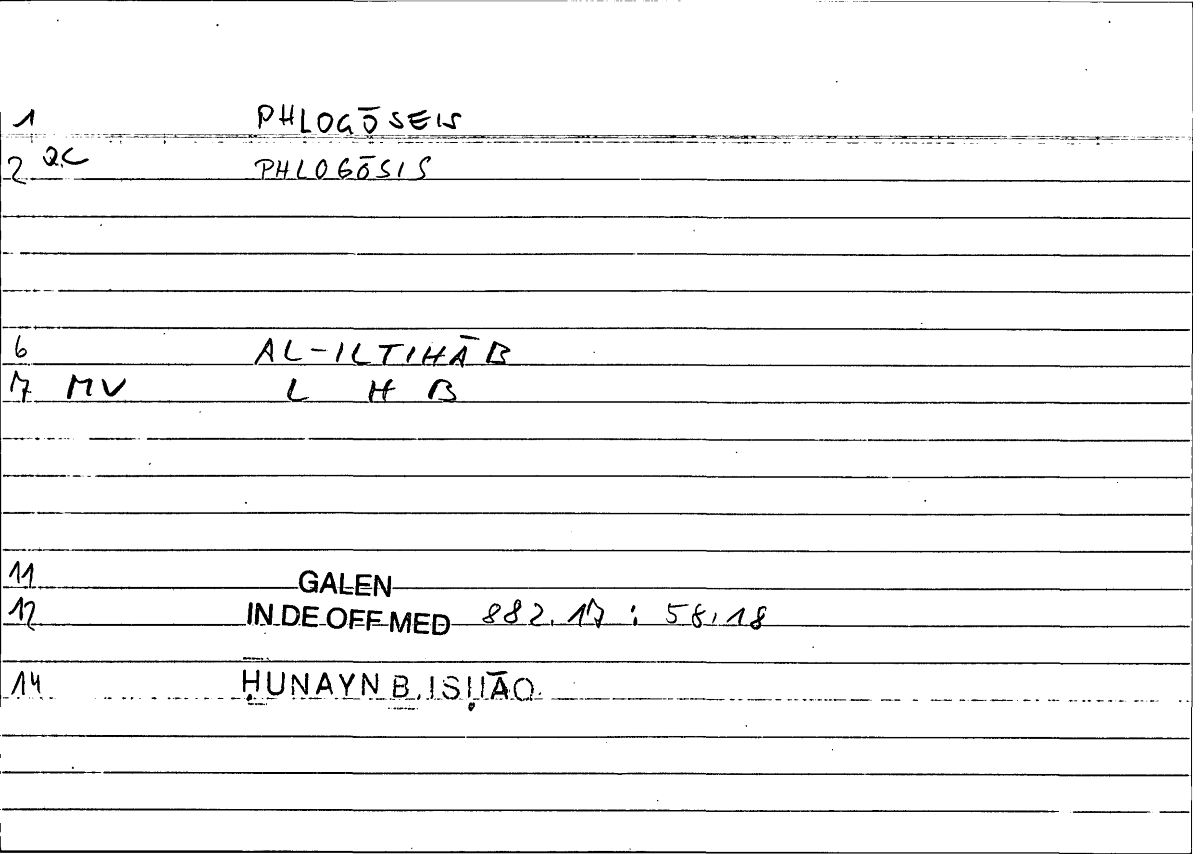 1 PHLOGŌSEIS
2 QC PHLOGŌSIS
6 AL-ILTIHĀB
7 MV L H B
11 GALEN
12 IN DE OFF MED 882.17 : 58,18
14 ḤUNAYN B. ISḤĀQ